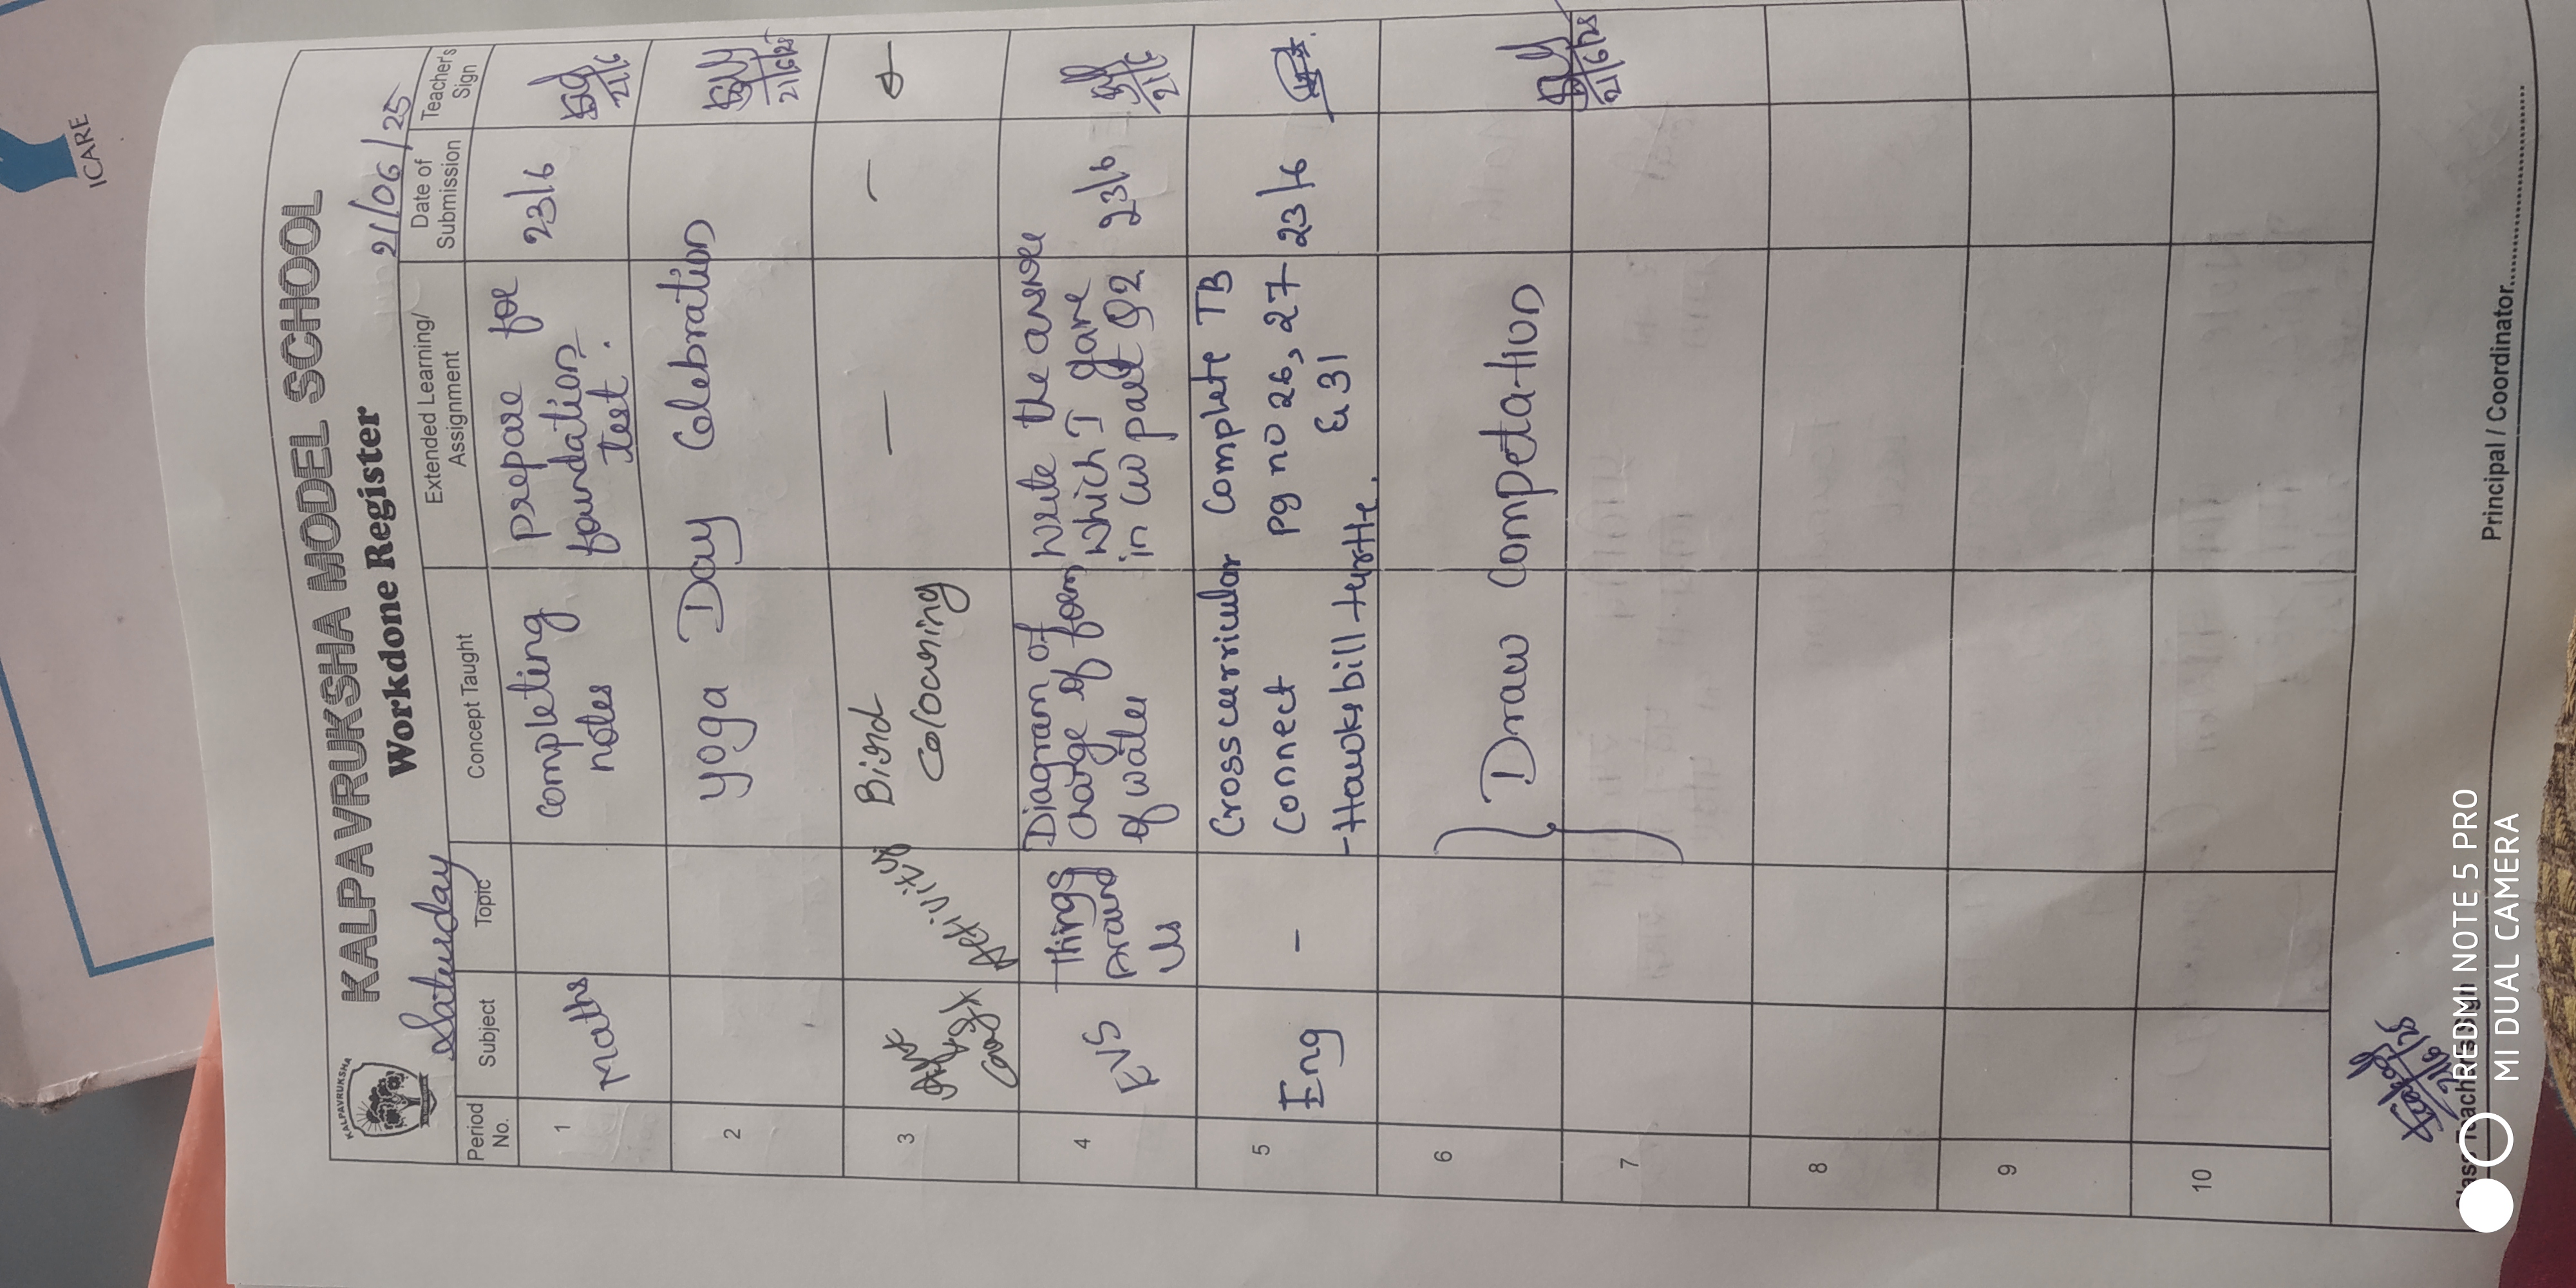 ICARE
KALPAVRUKSHA
KALPAVRUKSHA MODEL SCHOOL
Workdone Register
Saturday
21/06/25
Period No.
Subject
Topic
Concept Taught
Extended Learning/ Assignment
Date of Submission
Teacher's Sign
1
Maths
completing
notes
prepare for
foundation
test.
23/6
21/6
2
Yoga Day Celebration
21/6/25
3
Art
Activity
Bird
colouring
—
—
4
EVS
Things
around
Us
Diagram of
change of form
of water
write the answer
which I gave
in cw part Q2
23/6
21/6
5
Eng
-
Cross curricular
Connect
-Hawksbill turtle.
Complete TB
Pg no 26, 27
& 31
23/6
6
Draw Competation
21/6/25
7
8
9
10
21/6/25
Principal / Coordinator
REDMI NOTE 5 PRO
MI DUAL CAMERA